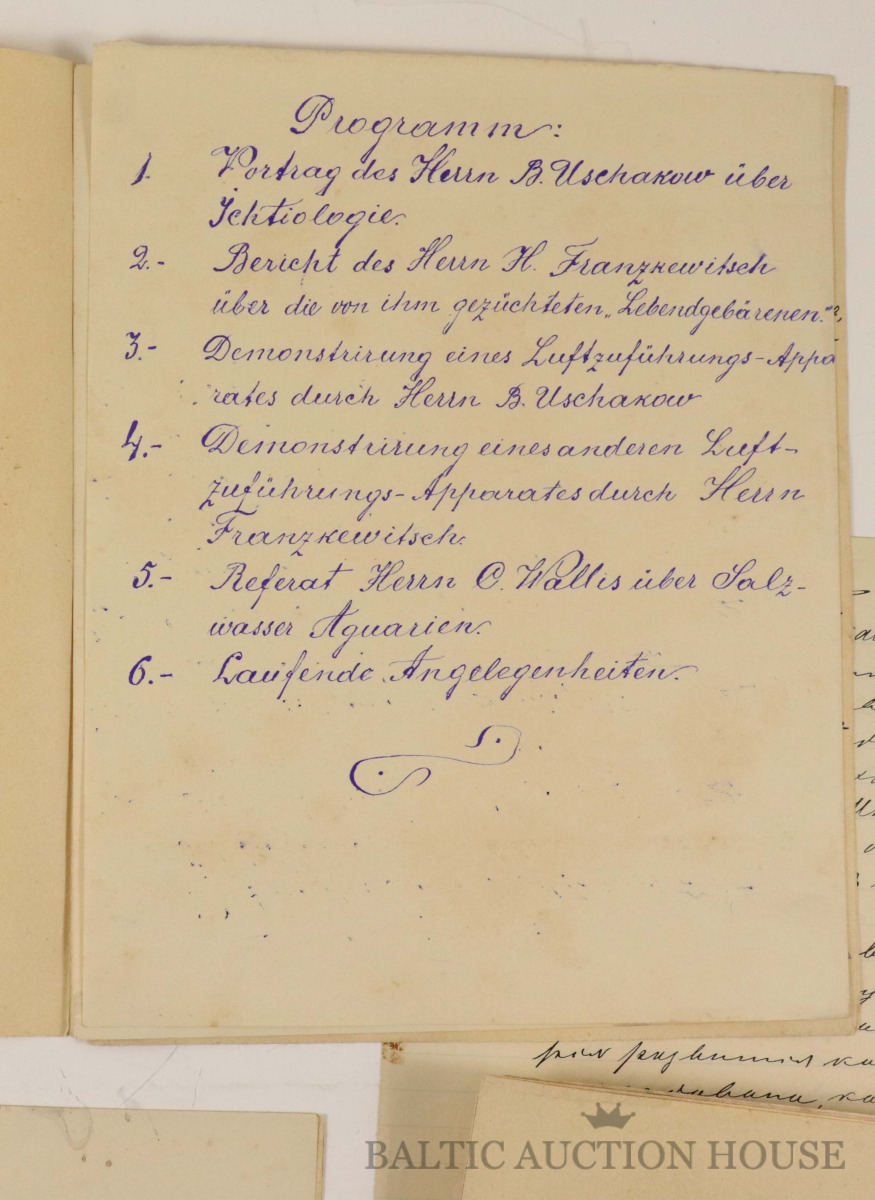 Programm:
1. Vortrag des Herrn B. Uschakow über
Ichtiologie.
2.- Bericht des Herrn H. Franzkewitsch
über die von ihm gezüchteten „Lebendgebärenen."
3.- Demonstrirung eines Luftzuführungs-Appa
rates durch Herrn B. Uschakow
4.- Demonstrirung eines anderen Luft-
zuführungs-Apparates durch Herrn
Franzkewitsch.
5.- Referat Herrn C. Wallis über Salz-
wasser Aquarien.
6.- Laufende Angelegenheiten.
BALTIC AUCTION HOUSE